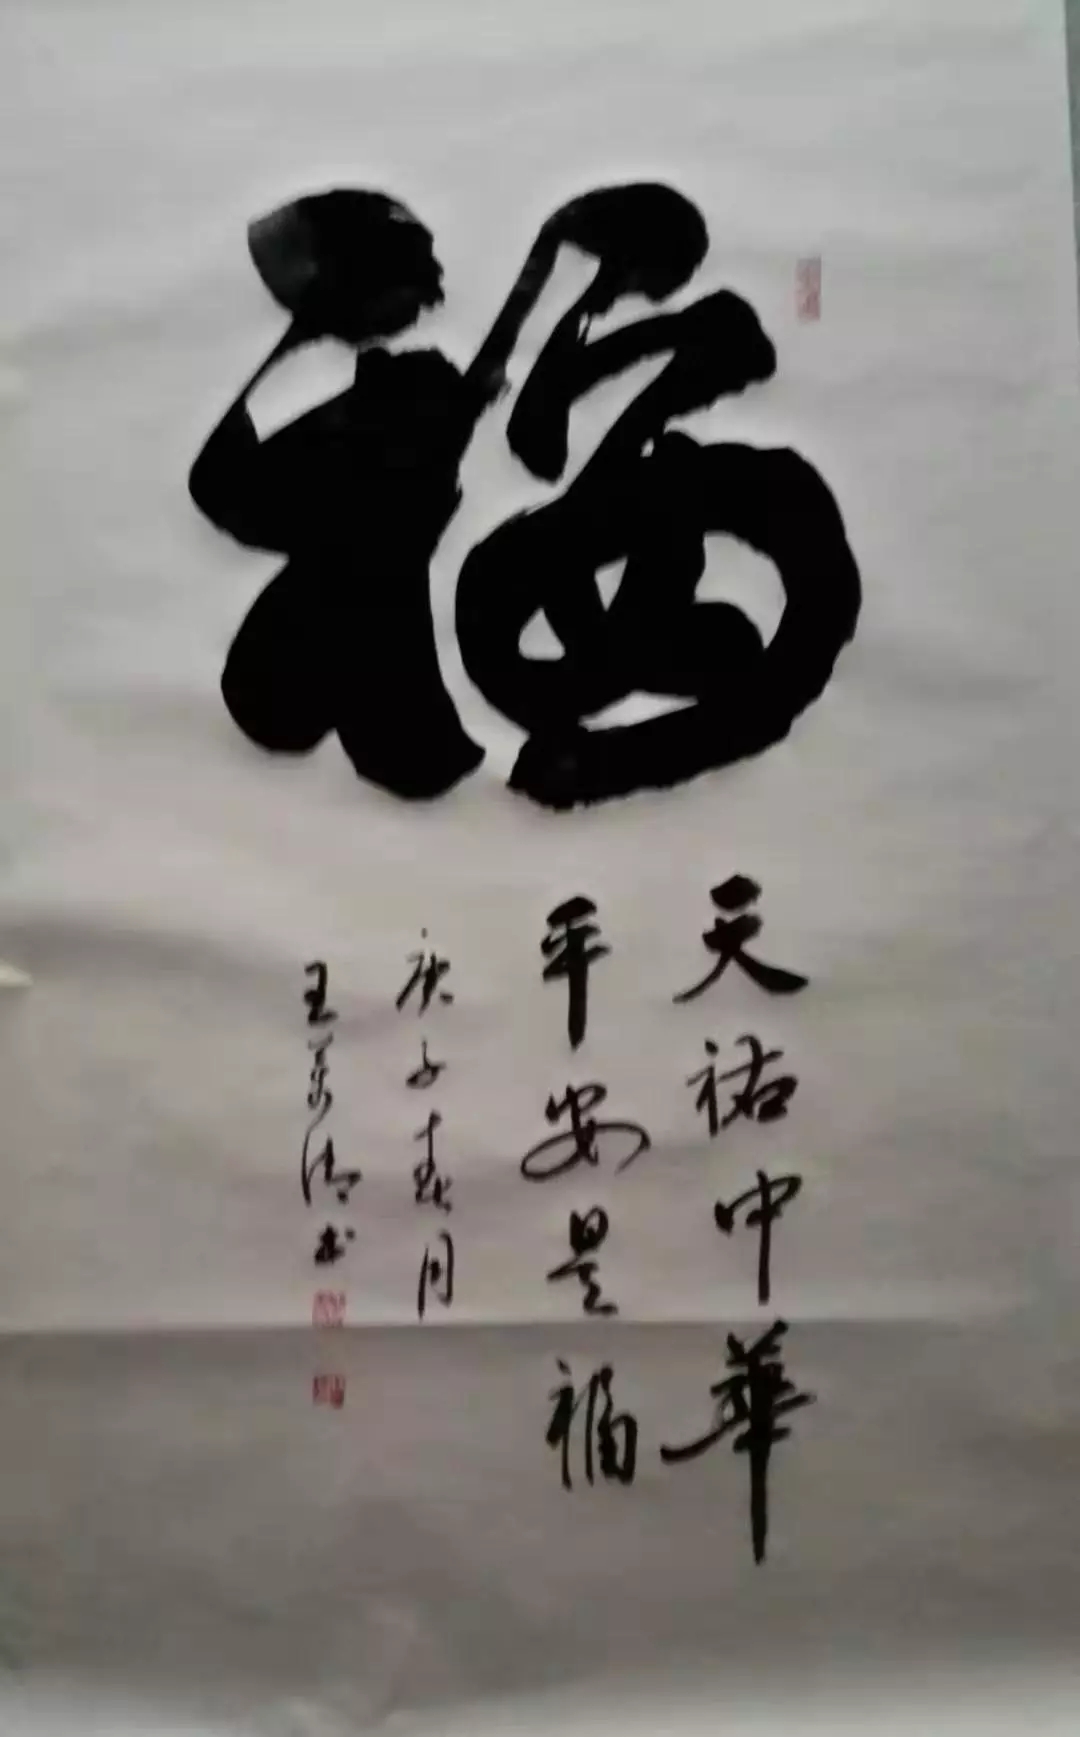 福
天祐中華
平安是福
庚子春月
王万清书